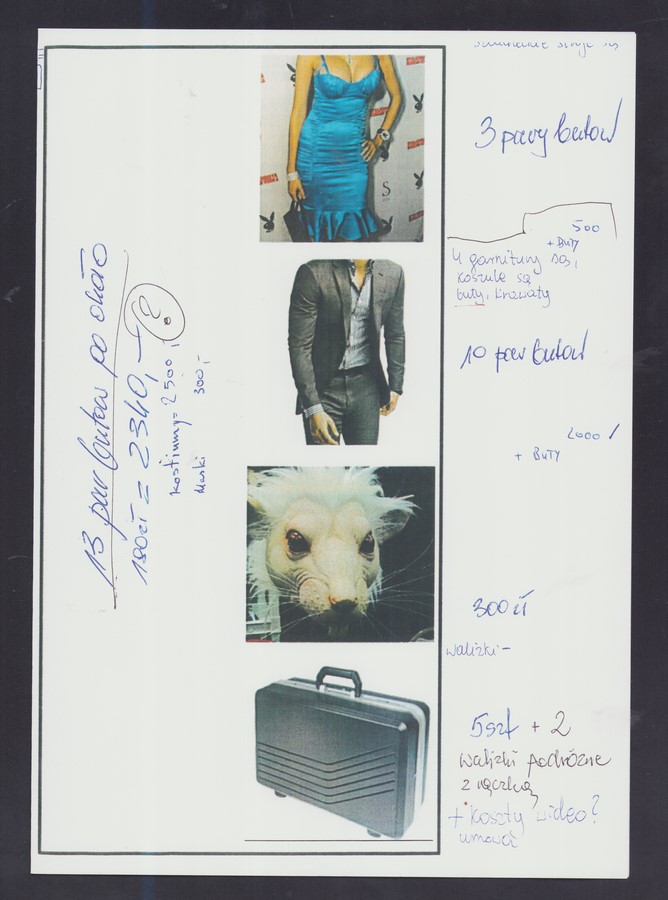 3 pary butów
500
+ BUTY
4 garnitury są,
koszule są
buty, krawaty
10 par butów
2000
+ BUTY
300 zł
walizki -
5szt + 2
walizki podróżne
z rączką
+ koszty wideo?
umowa
13 par butów po około
180zł = 2340,- ?
kostiumy = 2500,-
Maski 300,-